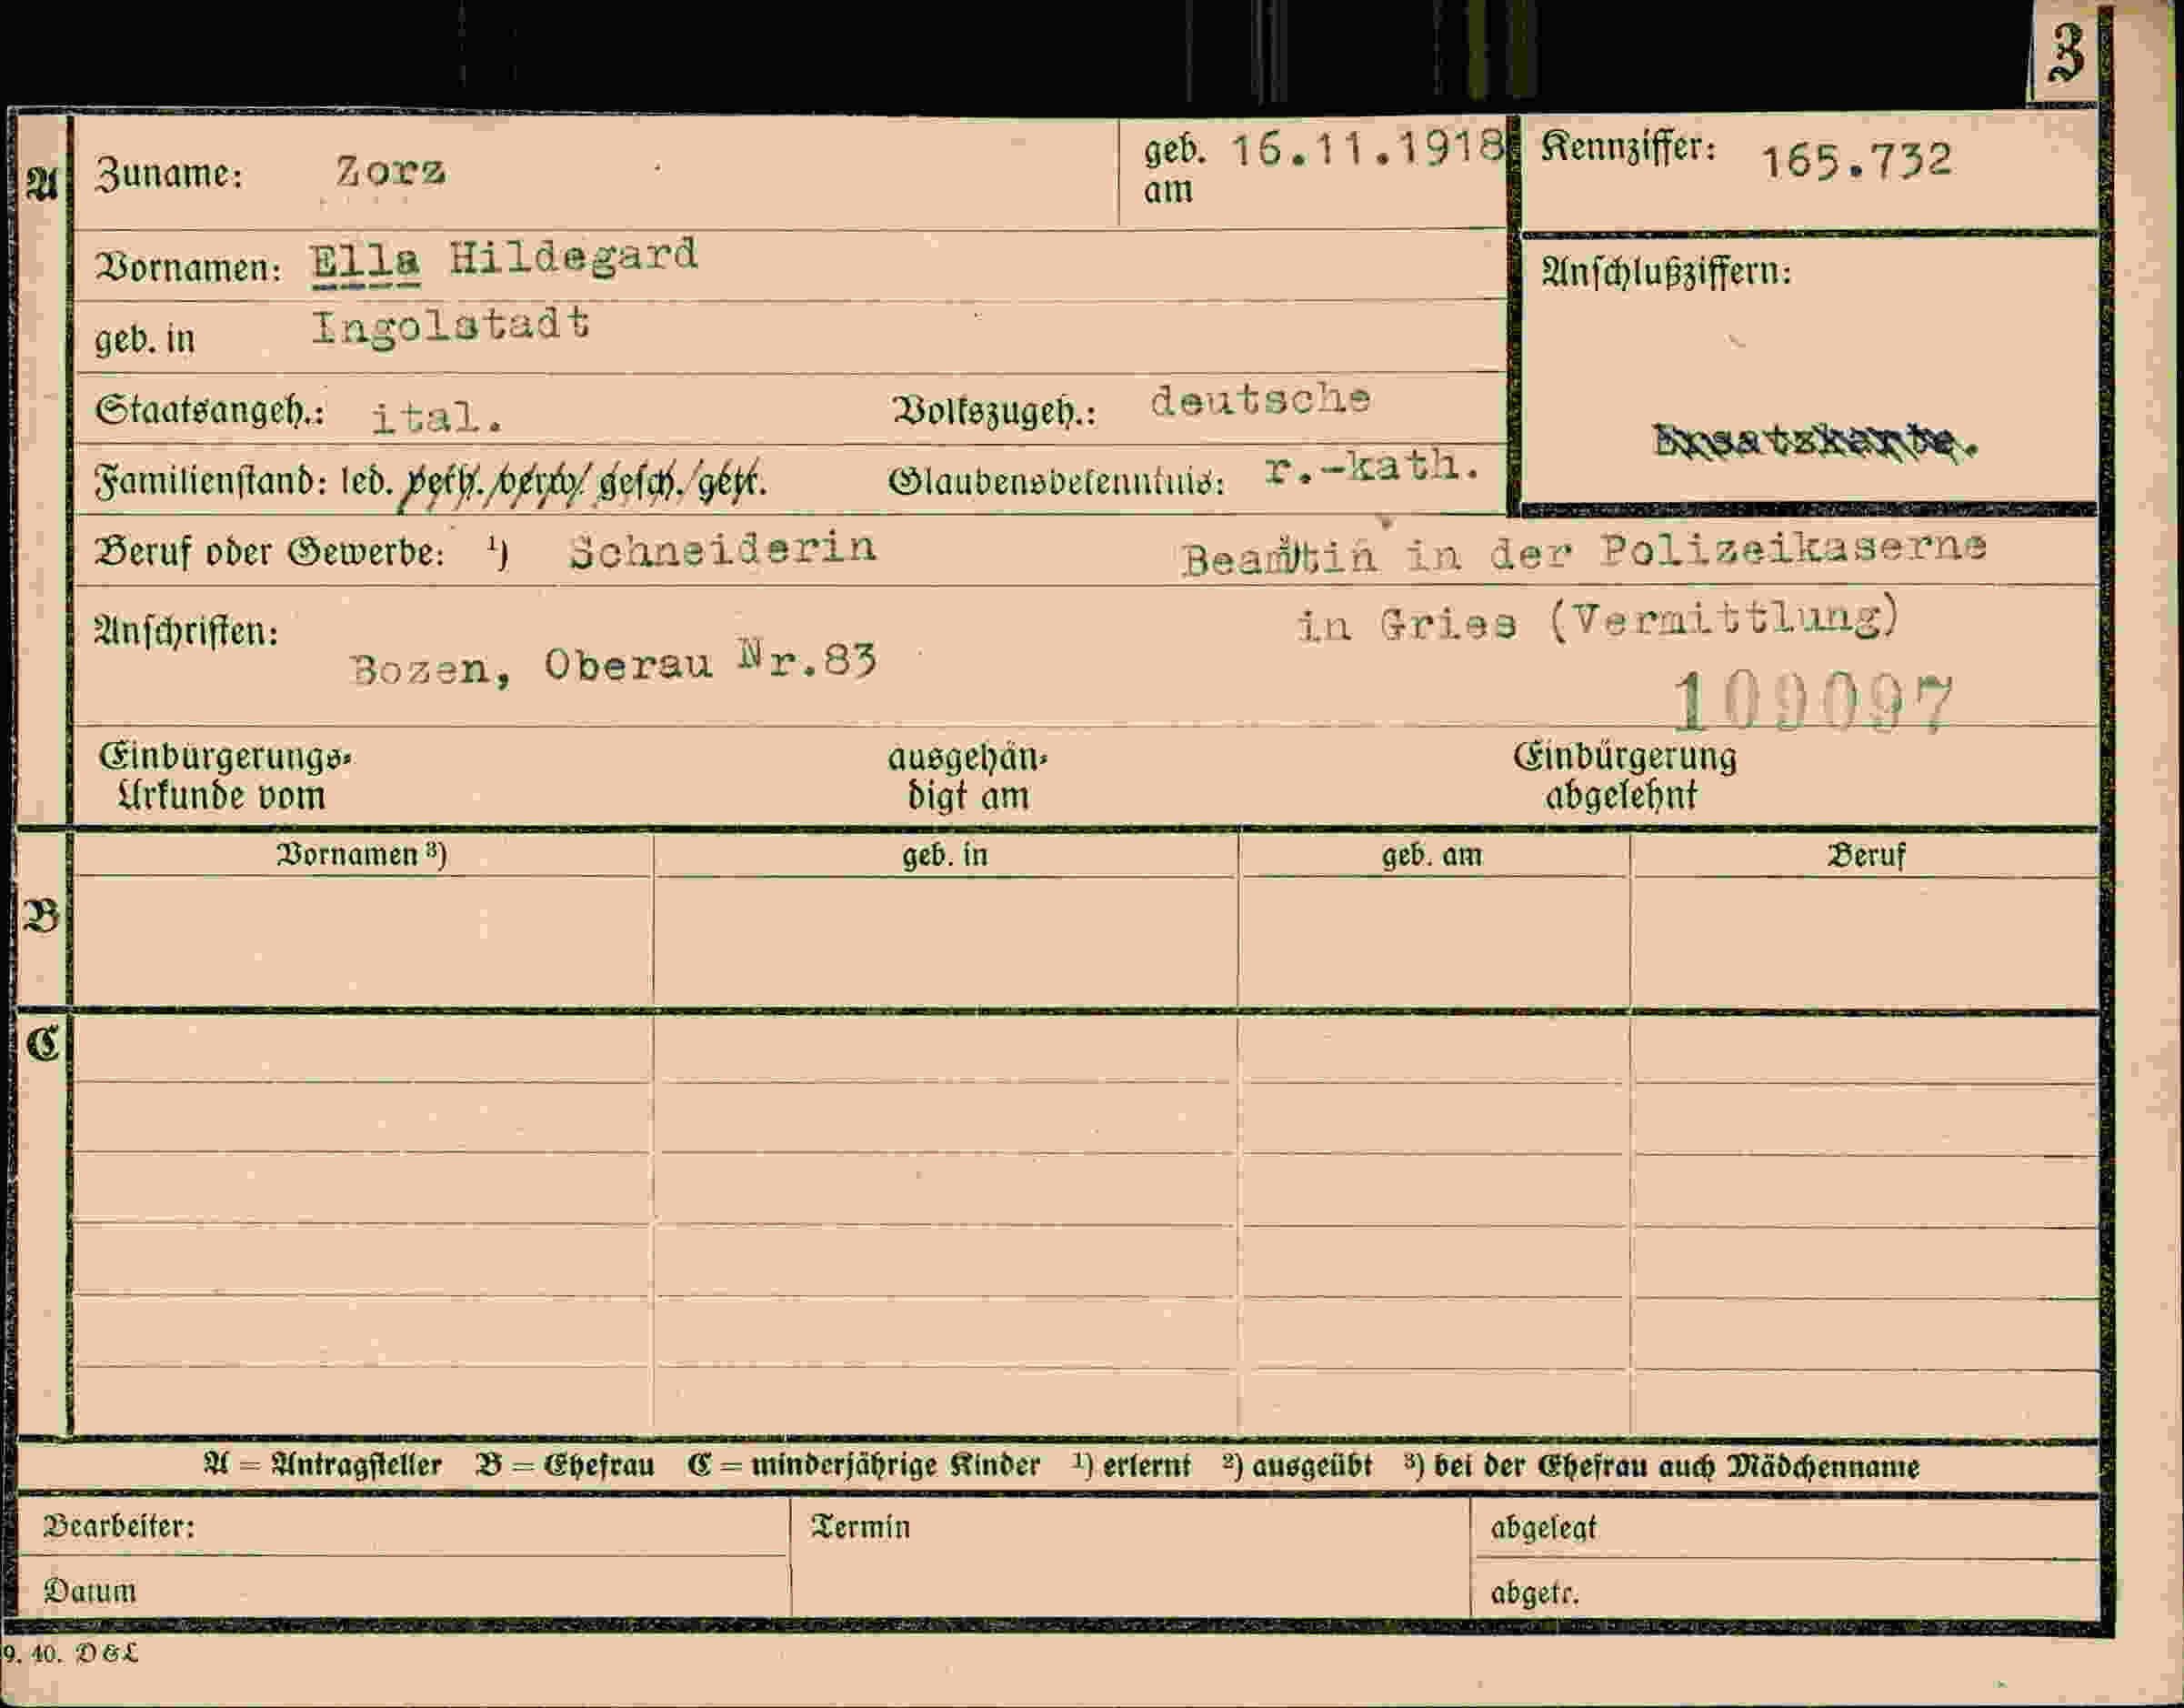 Z
A
Zuname: Zorz
geb. am 16.11.1918
Kennziffer: 165.732
Vornamen: Ella Hildegard
Anschlußziffern:
geb. in Ingolstadt
Staatsangeh.: ital. Volkszugeh.: deutsche
Ersatzkarte.
Familienstand: led. verh./verw./gesch./getr. Glaubensbekenntnis: r.-kath.
Beruf oder Gewerbe: ¹) Schneiderin Beamtin in der Polizeikaserne
in Gries (Vermittlung)
Anschriften: Bozen, Oberau Nr.83
109097
Einbürgerungs- ausgehän- Einbürgerung
Urkunde vom digt am abgelehnt
B
Vornamen ³) geb. in geb. am Beruf
C
A = Antragsteller B = Ehefrau C = minderjährige Kinder ¹) erlernt ²) ausgeübt ³) bei der Ehefrau auch Mädchenname
Bearbeiter: Termin abgelegt
Datum abgetr.
9. 40. D&L